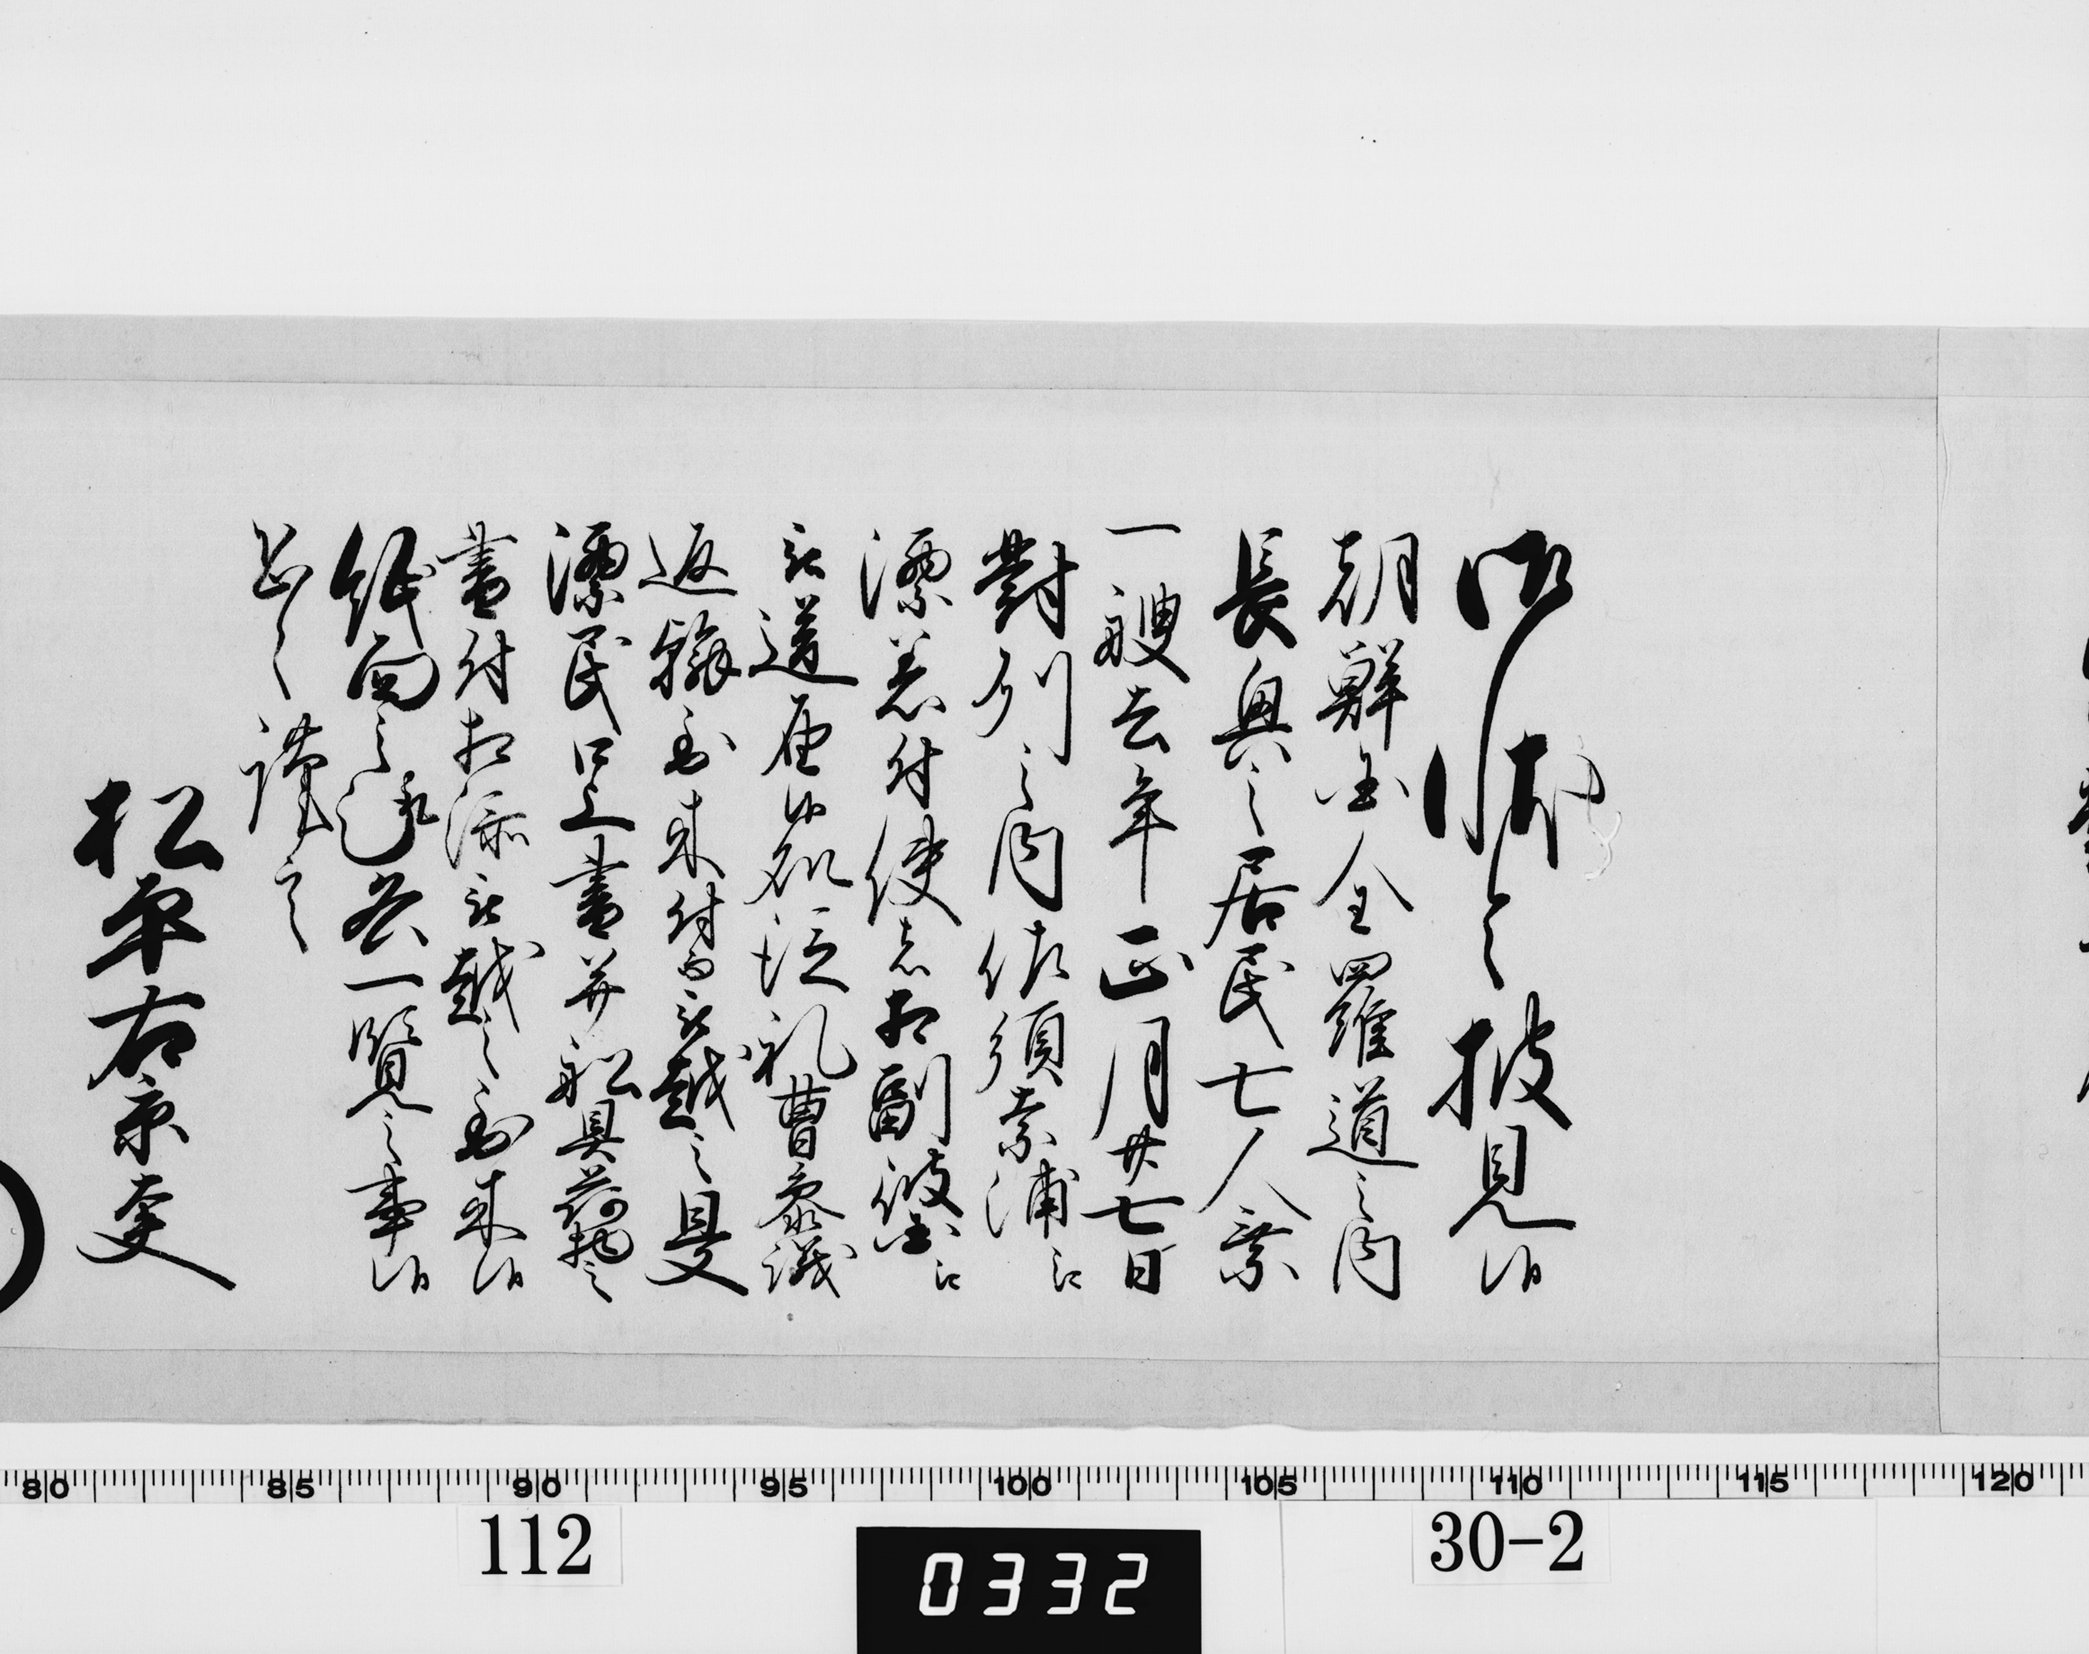 御状令披見候
朝鮮国全羅道之内
長興之居民七人乗
一艘去年正月廿七日
對列之内佐須奈浦江
漂着付使者相副彼国江
被送届候處従礼曹参議
返翰到来付而被越之是又
漂民口上書并船具荷物之
書付相添被越之到来候
紙面之趣各一覧之事候
恐々謹言
松平右京大夫
80 85 90 95 100 105 110 115 120
112
0332
30-2